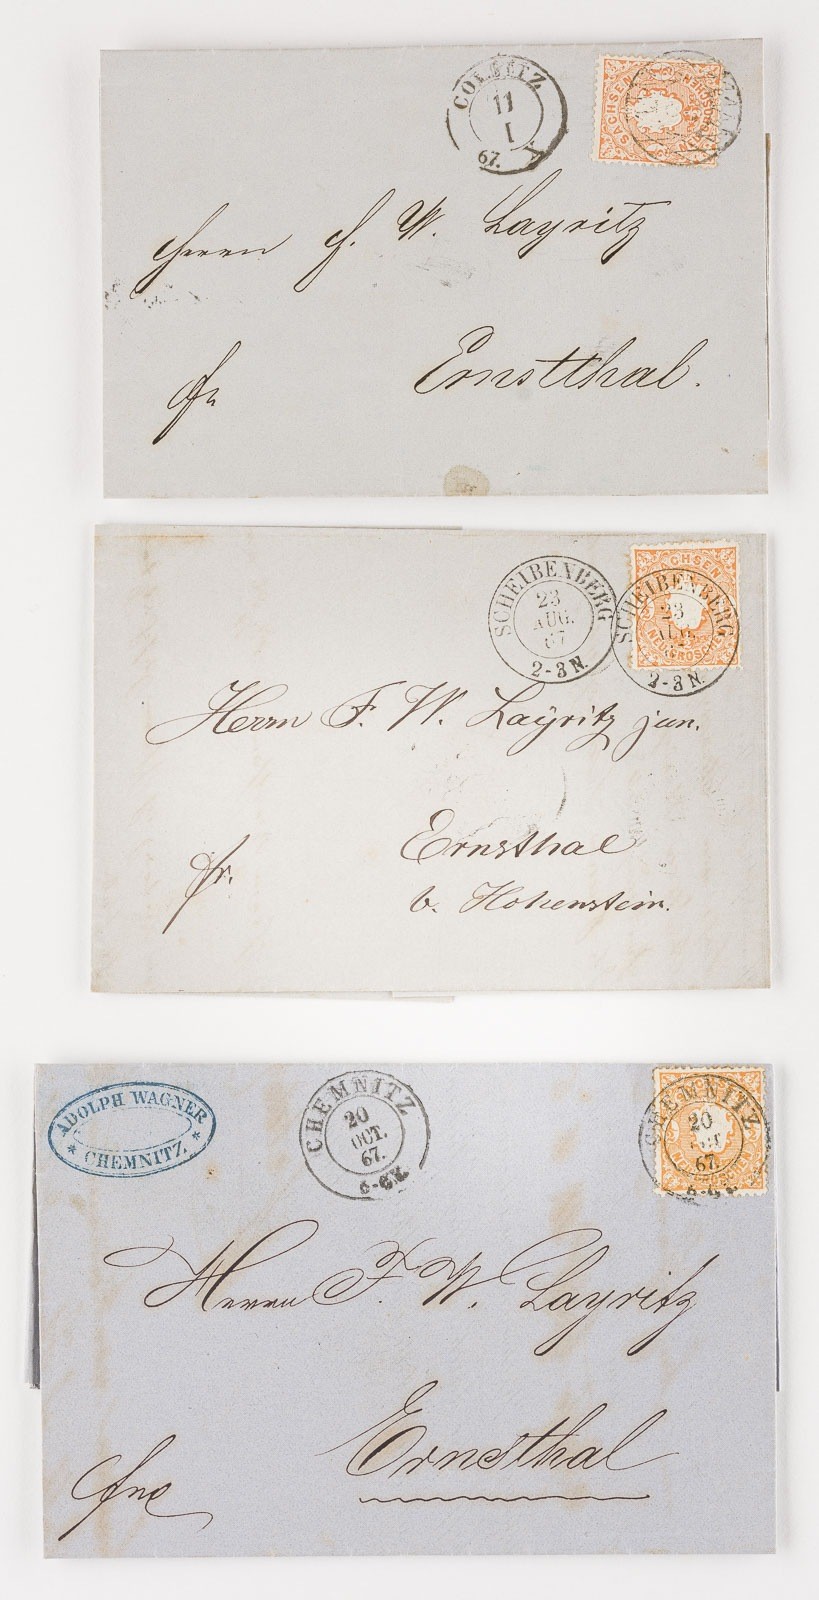 COLDITZ
11
I
67.
SACHSEN
Herrn F. W. Layritz
Ernstthal.
fr
SCHEIBENBERG
23
AUG.
67
2-3 N.
SACHSEN
NEUGROSCHEN
SCHEIBENBERG
23
AUG.
2-3 N.
Herrn F. W. Layritz jun.
Ernsthal
fr.
b. Hohenstein.
ADOLPH WAGNER
* CHEMNITZ. *
CHEMNITZ
20
OCT.
67.
CHEMNITZ
20
OCT
67.
NEUGROSCHEN
Herrn F. W. Layritz
Ernsthal
frco